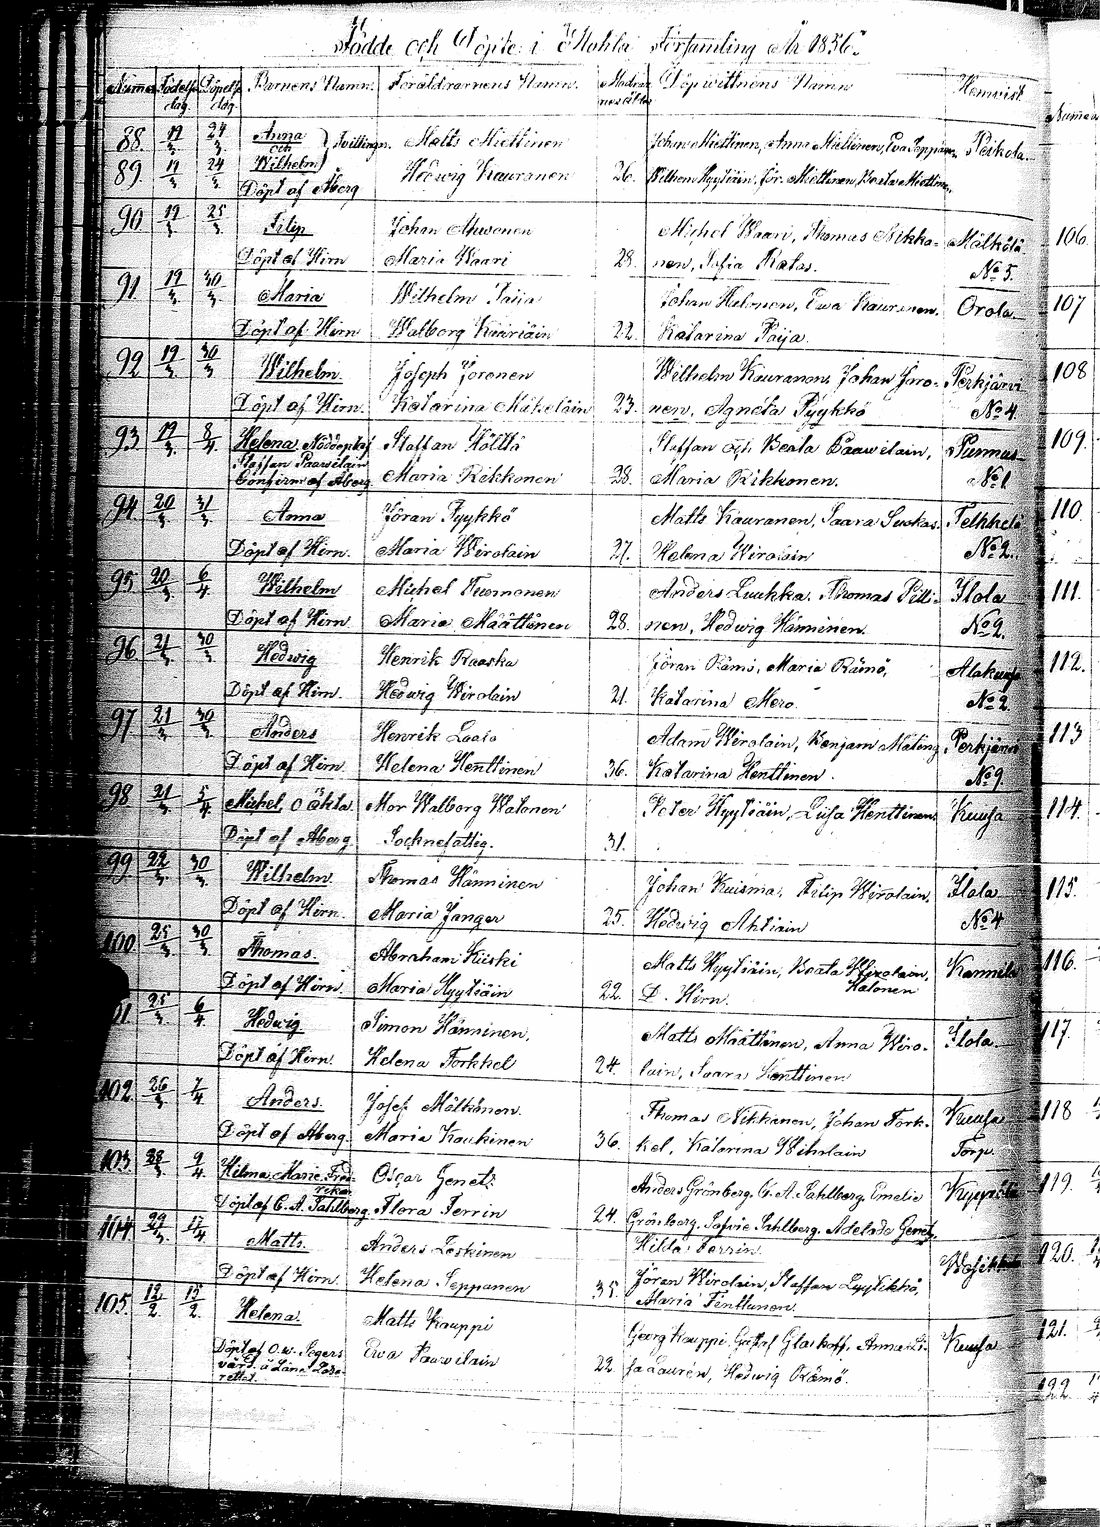 Födde och Döpte i Mohla Församling År 1856.
Numro Födelse dag Döpelse dag Barnens Namn. Föräldrarnens Namn. Modrens ålder Döpwittnens Namn Hemvist.
88. 19/3 24/3 Anna och Tvillingar. Matts Miettinen Johan Miettinen, Anna Miettinen, Eva Seppänen, Peikola.
89. 19/3 24/3 Wilhelm Hedwig Kauranen 26. Wilhem Hyytiäin, Jör. Miettinen, Beata Miettinen.
Döpt af Åberg
90. 19/3 25/3 Filip Johan Ahwonen Michel Waari, Thomas Nikka- Mälkölä
Döpt af Hirn Maria Waari 28. nen, Sofia Ratas. No 5.
91. 19/3 30/3 Maria Wilhelm Paija Johan Halonen, Ewa Kauranen. Orola
Döpt af Hirn Walborg Kääriäin 22. Katarina Paija.
92. 19/3 30/3 Wilhelm. Joseph Joronen Wilhelm Kauranen, Johan Joro- Perkjärvi
Döpt af Hirn. Katarina Mikeläin 23. nen, Agneta Pyykkö No 4.
93. 19/3 8/4 Helena Nöddöpt af Staffan Hölttä Staffan och Beata Paawilain, Punnus
Staffan Paawilain
Confirm. af Åberg. Maria Rikkonen 28. Maria Rikkonen. No 1
94. 20/3 31/3 Anna Jöran Pyykkö Matts Kauranen, Saara Suokas. Telkkelä
Döpt af Hirn. Maria Wirolain 27. Helena Wirolain No 2.
95. 20/3 6/4 Wilhelm Michel Tuomonen Anders Luukka. Thomas Pilli- Ilola
Döpt af Hirn. Maria Määttänen 28. nen, Hedwig Hänninen. No 2.
96. 21/3 30/3 Hedwig Henrik Raaska Jöran Rämö, Maria Rämö, Alakuusa
Döpt af Hirn. Hedwig Wirolain 21. Katarina Mero. No 2.
97. 21/3 30/3 Anders Henrik Laalo Adam Wirolain, Benjam Malin, Perkjärvi
Döpt af Hirn. Helena Henttinen 36. Katarina Henttinen. No 9.
98. 21/3 5/4 Michel, oäkta. Mor Walborg Walonen Peter Hyytiäin, Liisa Henttinen. Kuusa
Döpt af Åberg. Sochnefattig. 31.
99. 22/3 30/3 Wilhelm. Thomas Hänninen Johan Kuisma, Filip Wirolain, Ilola
Döpt af Hirn. Maria Janger 25. Hedwig Ahtiain No 4
100. 25/3 30/3 Thomas. Abraham Kiiski Matts Hyytiäin, Beata Wirolain, Kannila
Döpt af Hirn. Maria Hyytiäin 22. D. Hirn. Halonen
101. 25/3 6/4 Hedwig Simon Hänninen. Matts Määttänen, Anna Wiro- Ilola.
Döpt af Hirn. Helena Torkkel 24. lain, Saara Henttinen
102. 26/3 7/4 Anders. Josef Mälkönen. Thomas Nikkanen, Johan Tork- Kuusa
Döpt af Åberg. Maria Kaukinen 36. kel, Katarina Wihrlain Torp.
103. 28/3 9/4 Hilma Marie Fred- Oscar Genetz Anders Grönberg, C. A. Sahlberg, Emelie Kyyrölä
rika.
Döpt af C. A. Sahlberg. Flora Ferrin 24. Grönberg, Sofvie Sahlberg, Adelaide Genetz,
Hilda Ferrin.
104. 29/3 Matts. Anders Leskinen Jöran Wirolain, Staffan Lyytikkä,
Döpt af Hirn. Helena Seppänen 35. Maria Tenttunen.
105. 12/2 15/2 Helena. Matts Kauppi Georg Kauppi, Gustaf Glaskoff, Anna Li- Kuusa
Döpt af O. w. Segers
vård. å Länets Laza-
rettet. Ewa Paawilain 22. sa Lauren, Hedwig Rämö.
Numero
106
107
108
109.
110
111.
112.
113
114
115
116.
117.
118
119.
120.
121.
122.